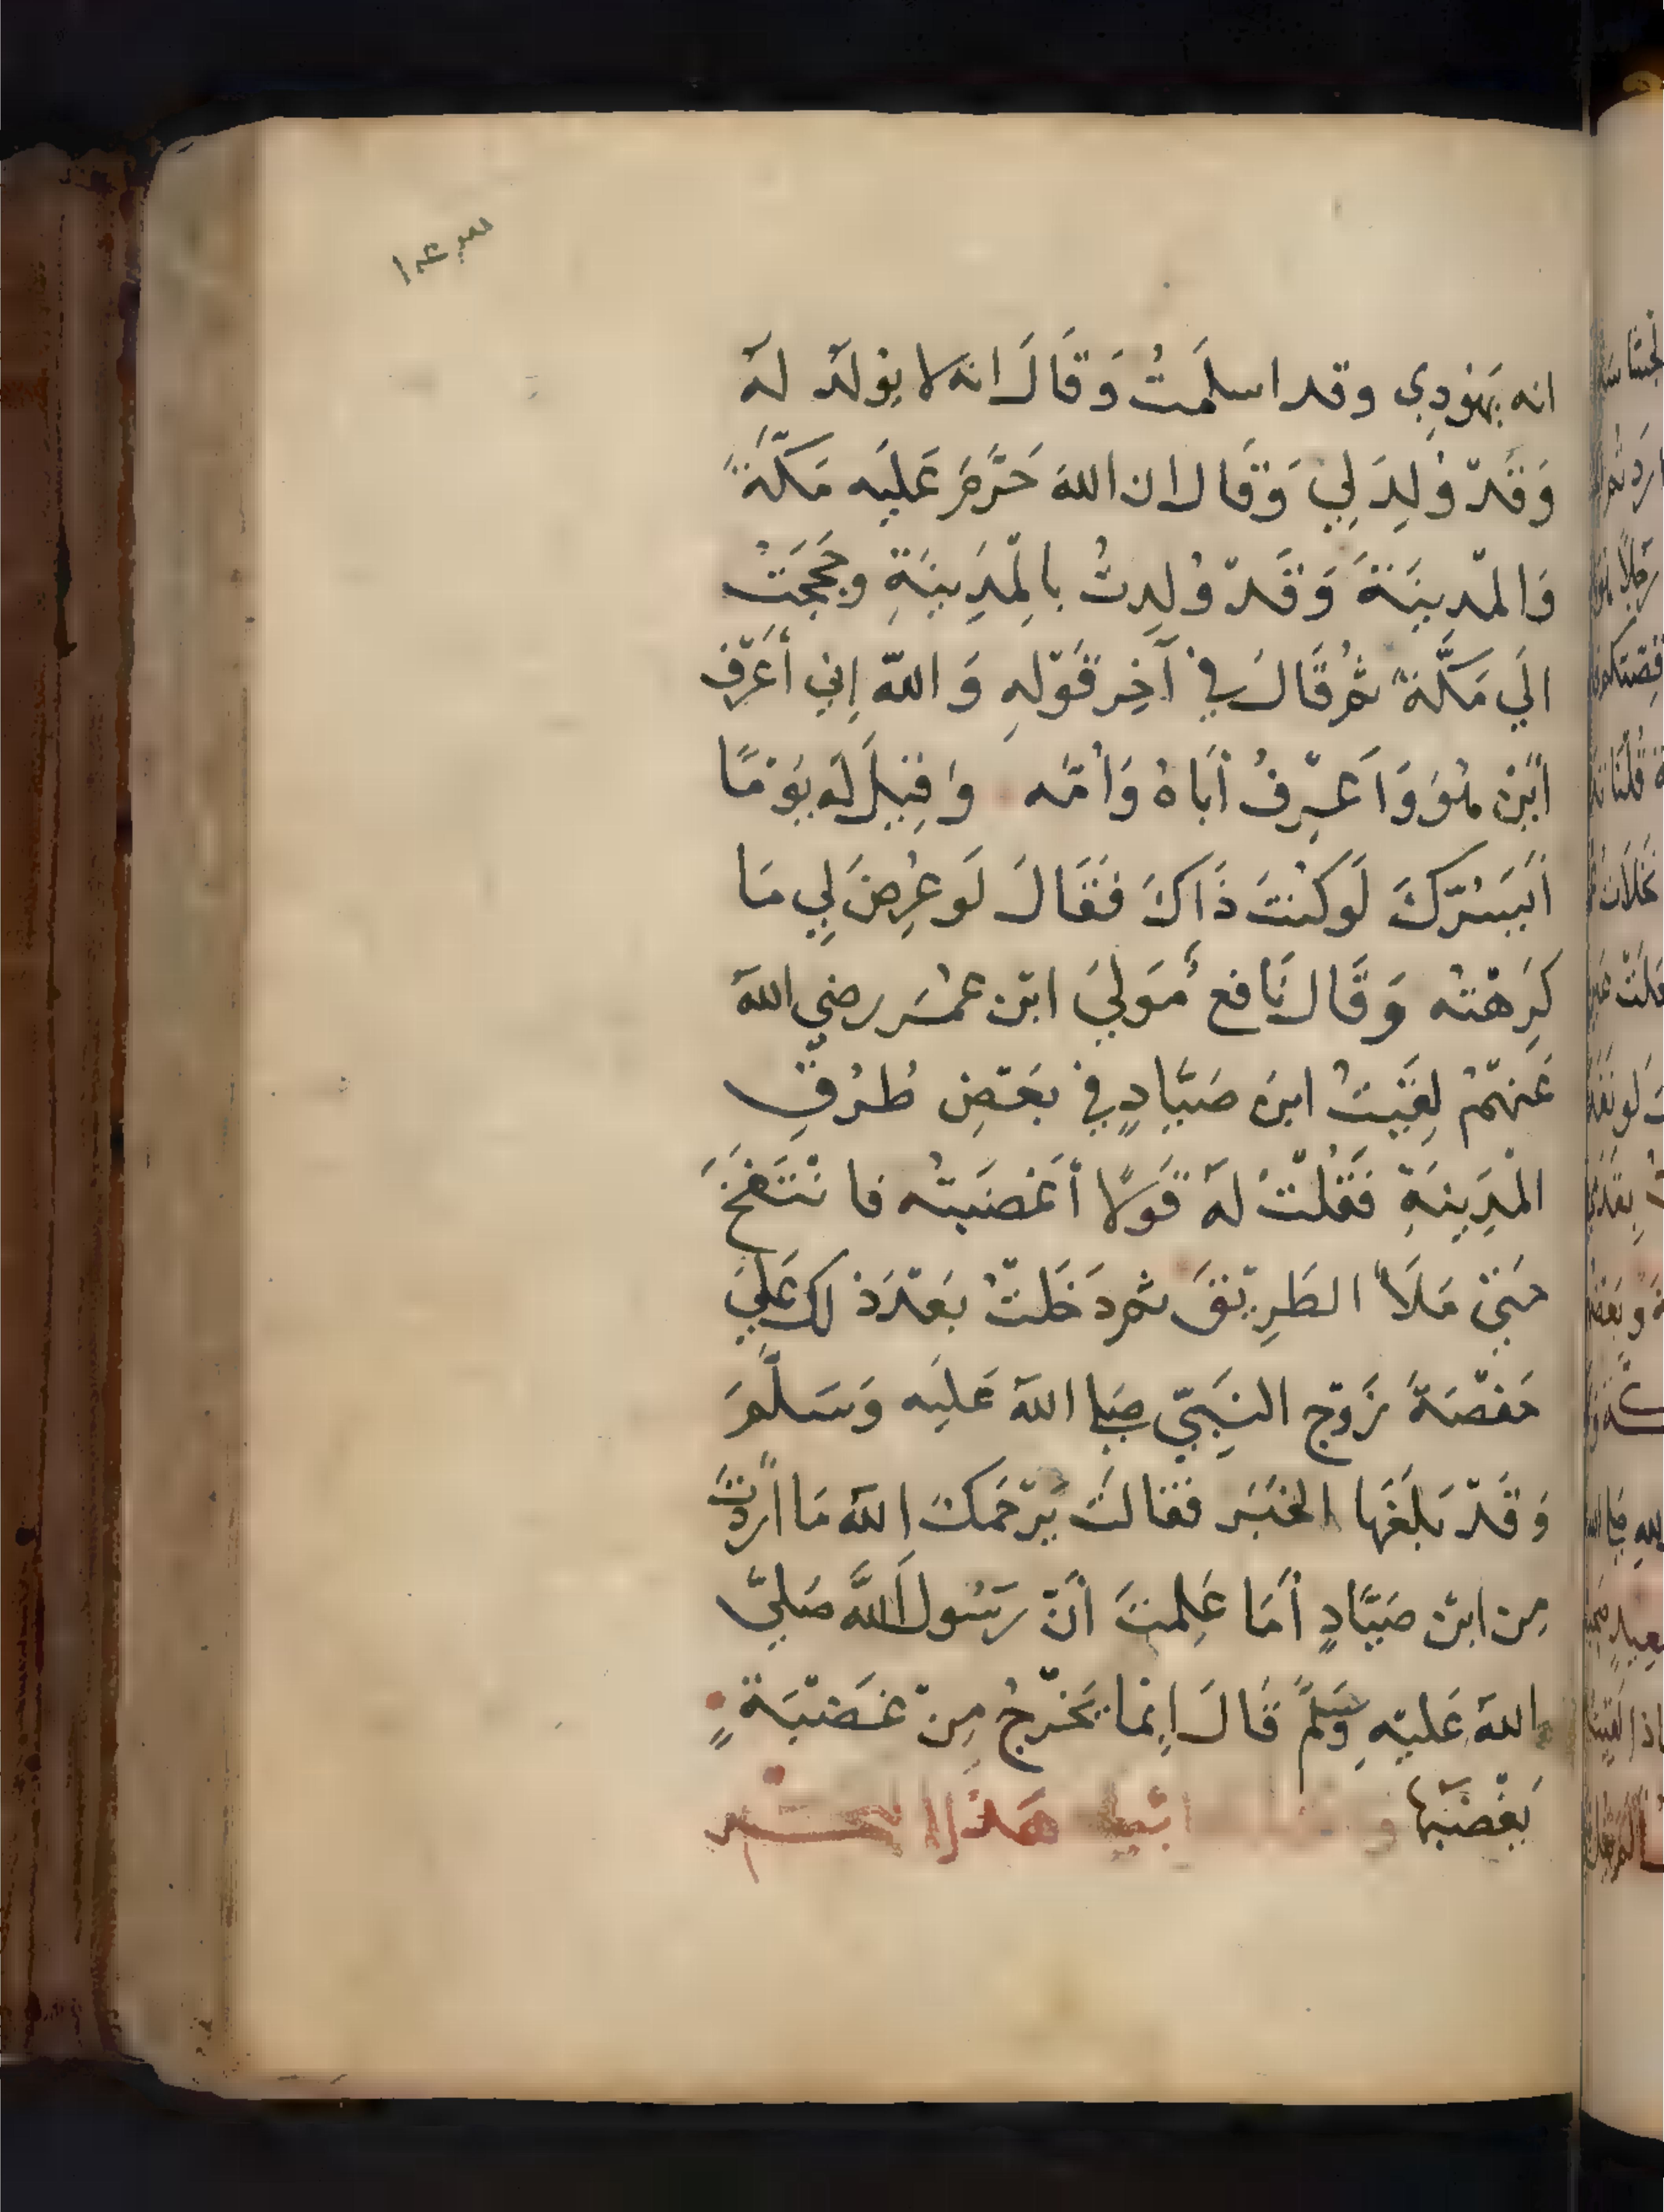 انه يَهُودِي وقد اسلمَتُ وَقَالَ انه لا يُولَدُ لَهُ
وَقَدْ وُلِدَ لِي وَقَال ان اللهَ حَرَّمَ عَلَيه مَكَّةَ
وَالمْدينَةَ وَقَدْ وُلِدتُ بالْمَدِينَةِ وحَجَجَتُ
الَي مَكَّةَ ثُمَّ قَالَ فِي آخِر قَوْلِهِ وَاللهِ إِني أَعْرِف
أَيْنَ هُوَ وَاَعْرِفُ أَبَاهُ وَأُمَّه وَقِيْلَ لَه يَوْمًا
أَيَسُرّكَ لَو كُنتَ ذَاكَ فَقَالَ لَو عُرِضَ لِي مَا
كَرِهْتُه وَقَال نَافع مَوَليَ ابْن عمُرَ رضي اللهُ
عَنهُمْ لَقَيْتُ ابنَ صَيَّادٍ فِي بَعْضِ طُرُقِ
الْمَدِينَةِ فَقُلْتُ لَهُ قَولاً أَغضَبتُه فانْتَفَخَ
حَتيْ مَلأَ الطَرِيْقَ ثم دَخَلتْ بَعْدَ ذَلك عَلَي
حَفْصَةَ زَوْجِ النَبِيّ صَلى اللهُ عَلَيه وَسَلَّمَ
وَقَدْ بَلَغَهَا الخَبَر فَقَالَت يَرْحَمكَ اللهُ مَا أَرَدتَ
مِن ابْن صَيَّادٍ أَمَا عَلِمتَ أَنّ رَسُول اللهَّ صَلىّ
اللهُ عَليْهِ وَسَلمَّ قَالَ إِنمَا يَخْرُجُ مِنْ غَضْبَةٍ
يَغْضَبُهَا هَذا